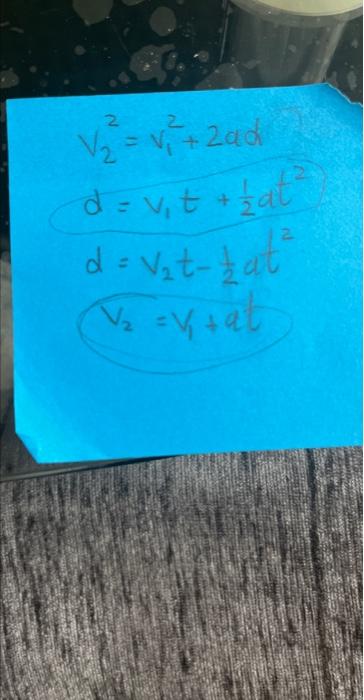 v₂² = v₁² + 2ad
d = v₁t + ½at²
d = v₂t - ½at²
v₂ = v₁ + at